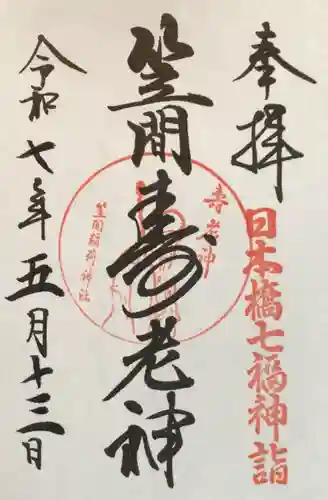 奉拝
日本橋七福神詣
笠間寿老神
寿老神
笠間稲荷神社
令和七年五月十三日